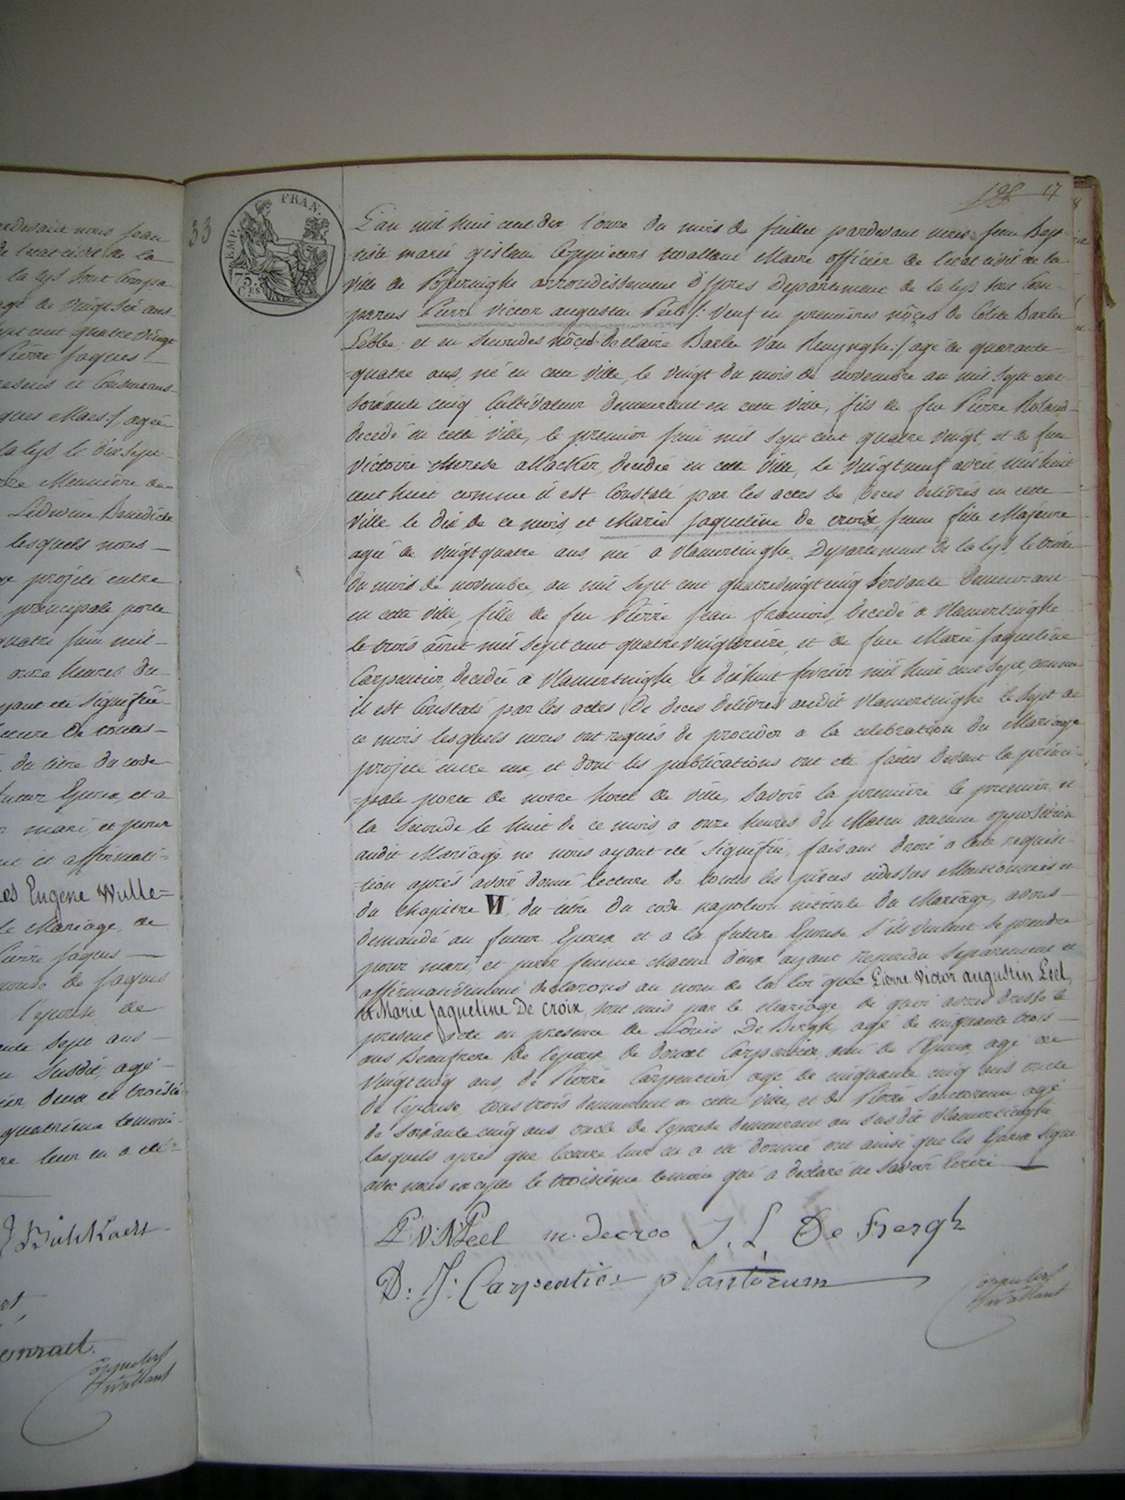 ardevant nous jean
de l'etat civil de la
la lys sont compa-
agé de vingt six ans
sept cent quatre vingt
Pierre Jaques
presens et consentans
ques Maes /. agée
la lys le dix sept
Meunière
Lidwine Benedicte
lesquels nous
projeté entre
principale porte
quatre juin mil
onze heures du
ayant été signifiée
lecture de toutes
du titre du code
futur Epoux, et a
mari, et pour
et affirmati-
es Eugene Wulle=
le Mariage, de
Pierre Jaques
de Jaques
l'epoux, de
sept ans
Susdit, agé
deux et troisiè
quatrième temoin
leur en a été
Coppieters
t'wallant
33
EMP. FRAN.
17
L'an mil huit cent dix l'onze du mois de juillet pardevant nous jean Bap-
-tiste marie gislain Coppieters twallant Maire officier de l'etat civil de la
ville de Poperinghe arrondissement d'Ypres Departement de la lys sont Com-
parus Pierre Victor augustin Peel /. veuf en premières nôçes de Colette Barbe
Lebbe et en secondes nôçes de claire Barbe Van Renynghe /. agé de quarante-
=quatre ans, né en cette ville, le vingt du mois de novembre an mil sept cent
soixante cinq Cultivateur demeurant en cette ville, fils de feu Pierre Roland
decedé en cette ville, le premier juin mil sept cent quatre vingt et de feue
victoire therese allacker decedée en cette ville, le vingt neuf avril mil huit
cent huit comme il est Constaté par les actes de deces delivrés en cette
ville le dix de ce mois, et Marie Jaqueline de croix, jeune fille Majeure
agée de vingt quatre ans, née a Vlamertinghe, Departement de la lys, le treize
du mois de novembre an mil sept cent quatre vingt cinq Servante demeurant
en cette ville, fille de feu Pierre jean francois, decedé a Vlamertinghe
le trois avril mil sept cent quatre vingt treize, et de feue Marie Jaqueline
Carpentier decedée a Vlamertinghe le dix huit fevrier mil huit cent sept, comme
il est Constaté par les actes de deces delivrés audit Vlamertinghe le sept de
ce mois lesquels nous ont requis de proceder a la celebration du Mariage
projeté entre eux, et dont les publications ont été faites devant la princi-
=pale porte de notre hotel de ville, Savoir la première le premier, et
la Seconde le huit de ce mois a onze heures du Matin aucune opposition
audit Mariage ne nous ayant été signifiée, faisant droit a leur requisi-
-tion après avoir donné lecture de toutes les pièces cidessus Mentionnées et
du Chapitre VI, du titre du code napoleon intitulé du Mariage, avons
demandé au futur Epoux et a la future Epouse s'ils veulent se prendre
pour mari, et pour femme chacun d'eux ayant repondu separement et
affirmativement declarons au nom de la loi que Pierre Victor augustin Peel,
et Marie Jaqueline De croix, sont unis par le Mariage de quoi avons dressé le
present acte en presence de Louis De Bergh agé de cinquante trois
ans Beaufrere de l'epoux, de Donat Carpentier, ami de l'Epoux, agé de
vingt cinq ans, de Pierre Carpentier agé de cinquante cinq ans oncle
de l'epouse, tous trois demeurant en cette ville, et de Pierre Santorum agé
de soixante cinq ans oncle de l'epouse demeurant au susdit Vlamertinghe,
lesquels après que lecture leur en a été donnée ont ainsi que les Epoux signé
avec nous excepté le troisième temoin qui a declaré ne savoir ecrire
P. V. A Peel m: decroo J. L. De Bergh
D: J: Carpentier p Santorum
Coppieters
t'wallant